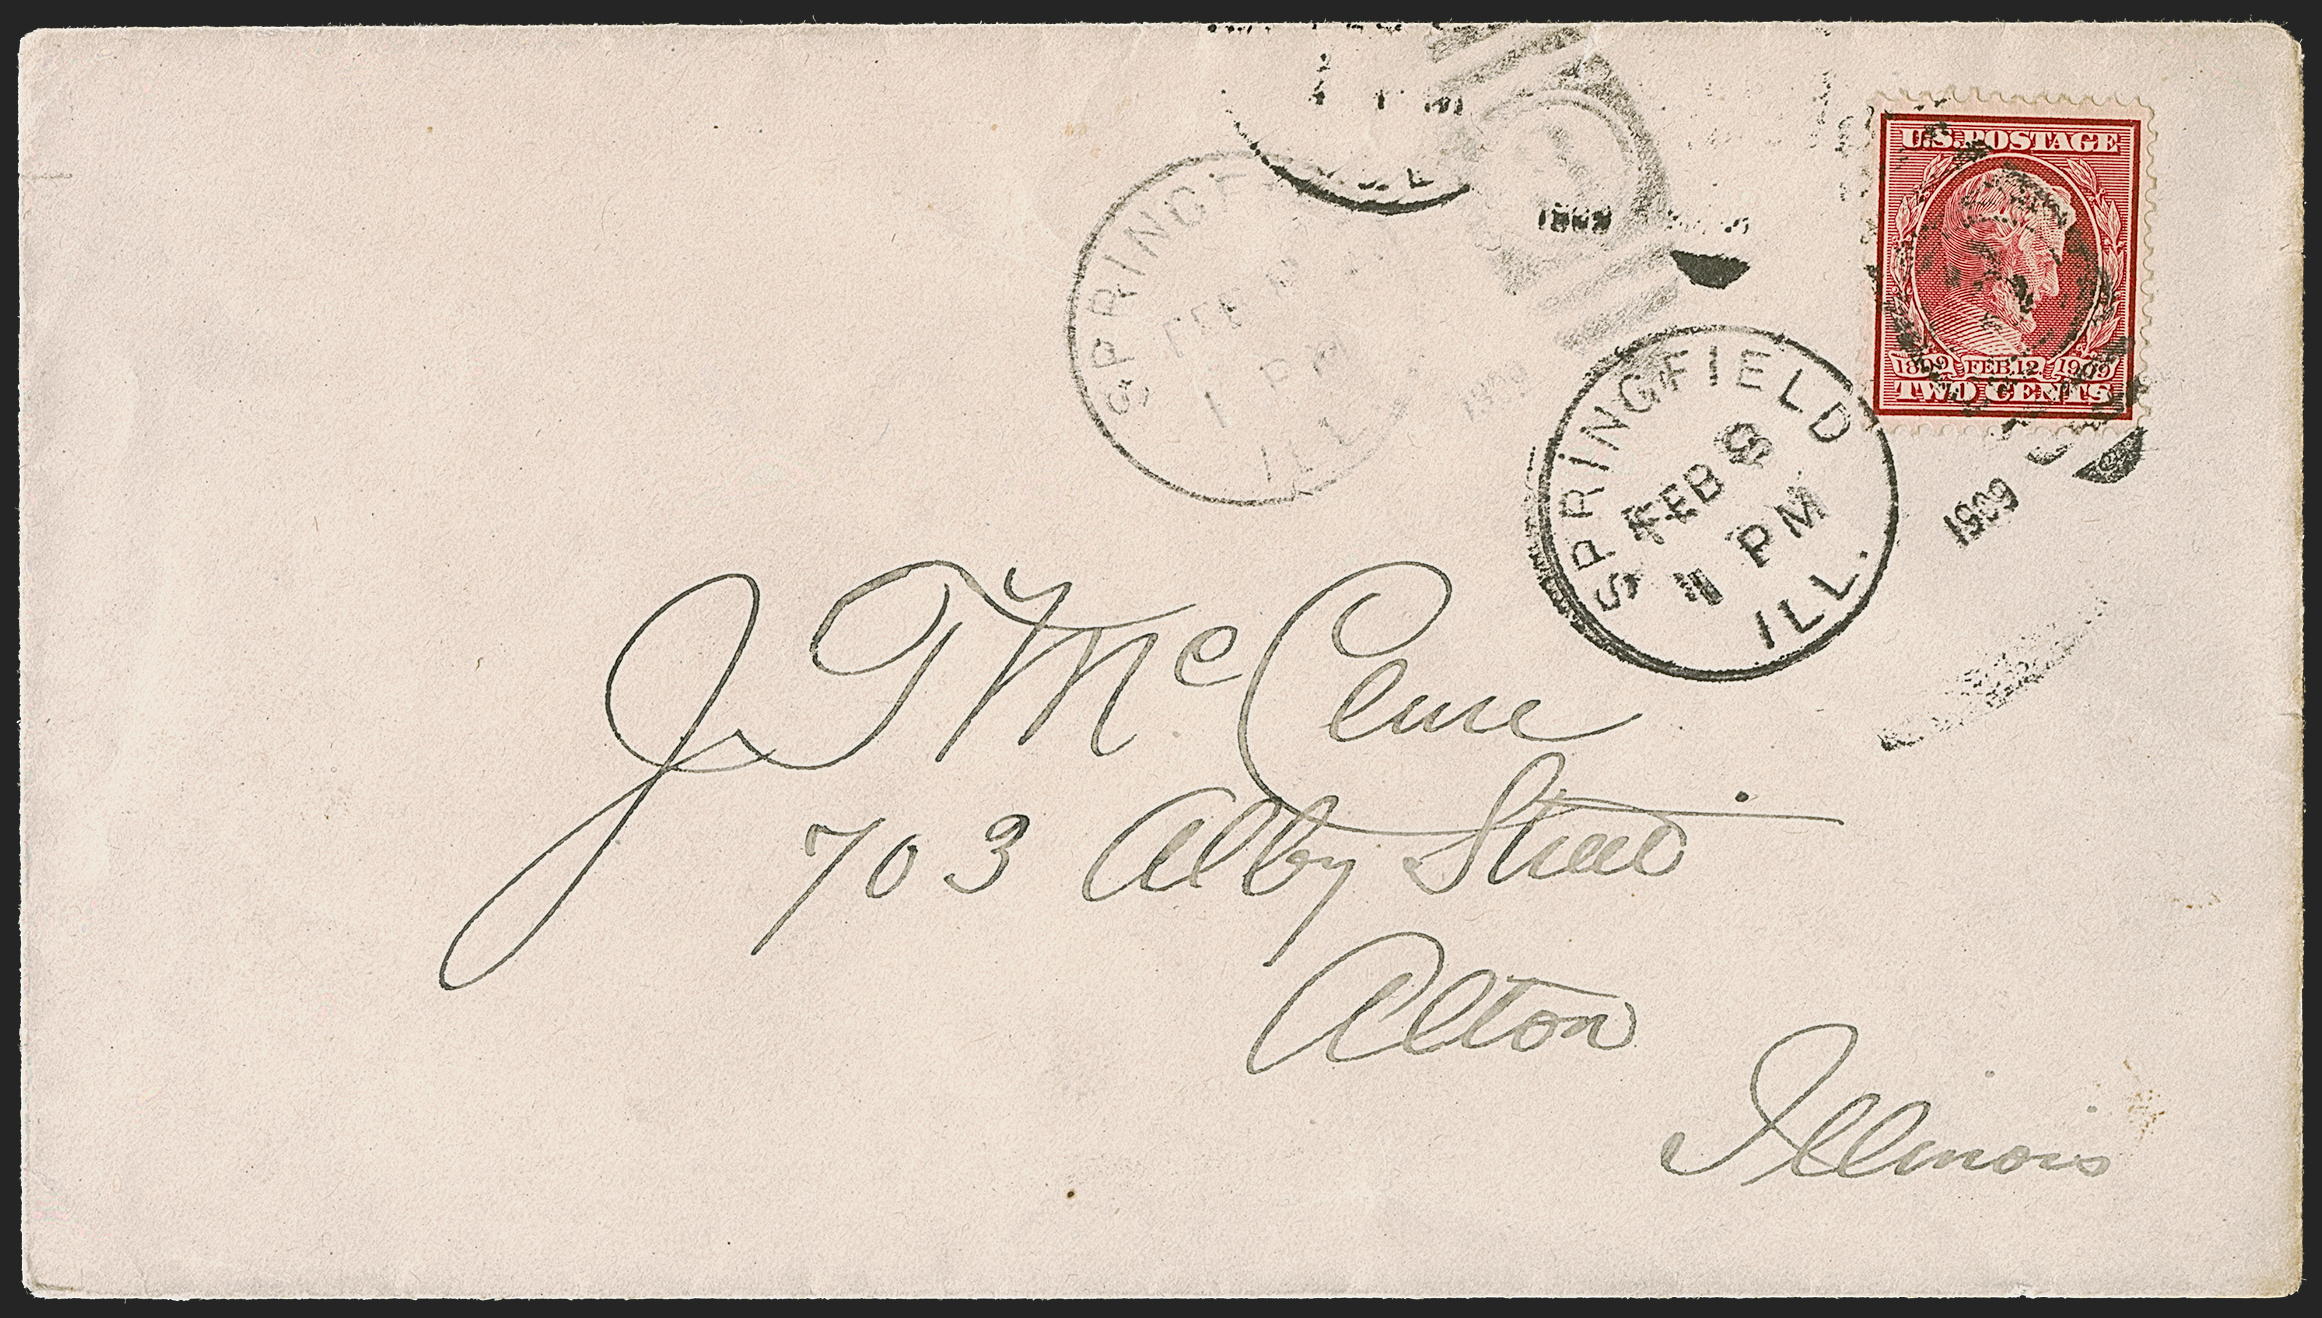 U.S. POSTAGE
1809 FEB. 12. 1909
TWO CENTS
1909
SPRINGF
FEB
1 PM
ILL
1909
SPRINGFIELD
FEB
PM
ILL.
1909
J T McClure
703 Alby Street
Alton
Illinois